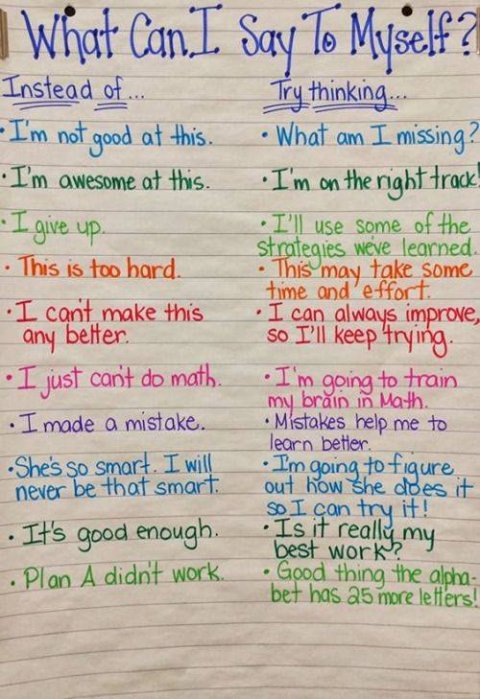 What Can I Say To Myself?
Instead of...
Try thinking...
• I'm not good at this.
• What am I missing?
• I'm awesome at this.
• I'm on the right track!
• I give up.
• I'll use some of the
strategies we've learned.
• This is too hard.
• This may take some
time and effort.
• I can't make this
any better.
• I can always improve,
so I'll keep trying.
• I just can't do math.
• I'm going to train
my brain in Math.
• I made a mistake.
• Mistakes help me to
learn better.
• She's so smart. I will
never be that smart.
• I'm going to figure
out how she does it
so I can try it!
• It's good enough.
• Is it really my
best work?
• Plan A didn't work.
• Good thing the alpha-
bet has 25 more letters!